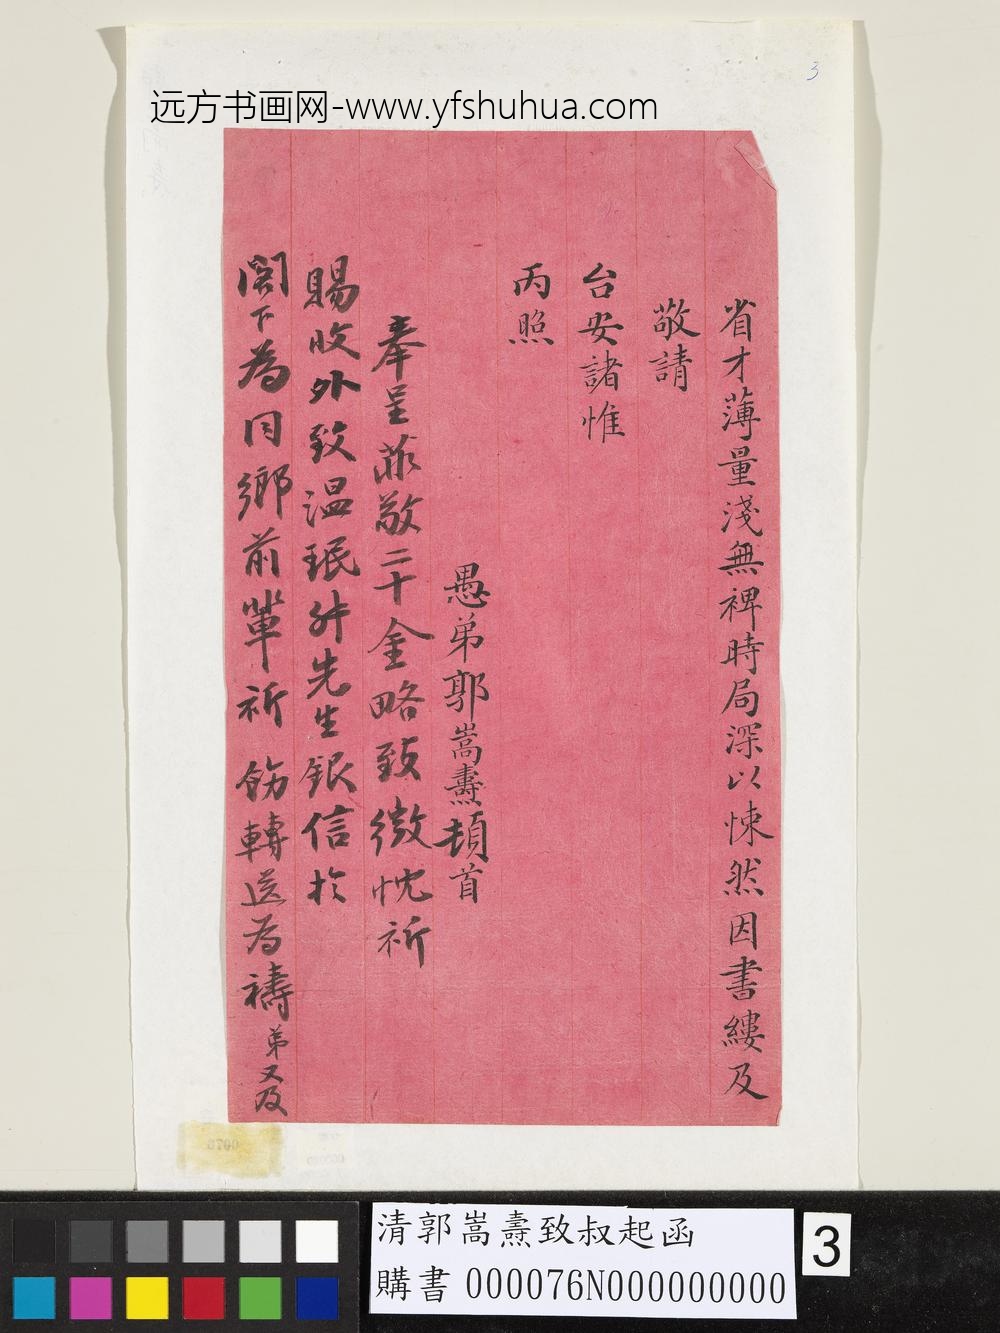 3
远方书画网-www.yfshuhua.com
省才薄量淺無裨時局深以悚然因書縷及
敬請
台安諸惟
丙照
愚弟郭嵩燾頓首
奉呈菲敬二十金略致微忱祈
賜收外致温珉叔先生銀信於
閣下為同鄉前輩祈飭轉送為禱弟又及
清郭嵩燾致叔起函
購書 000076N000000000
3